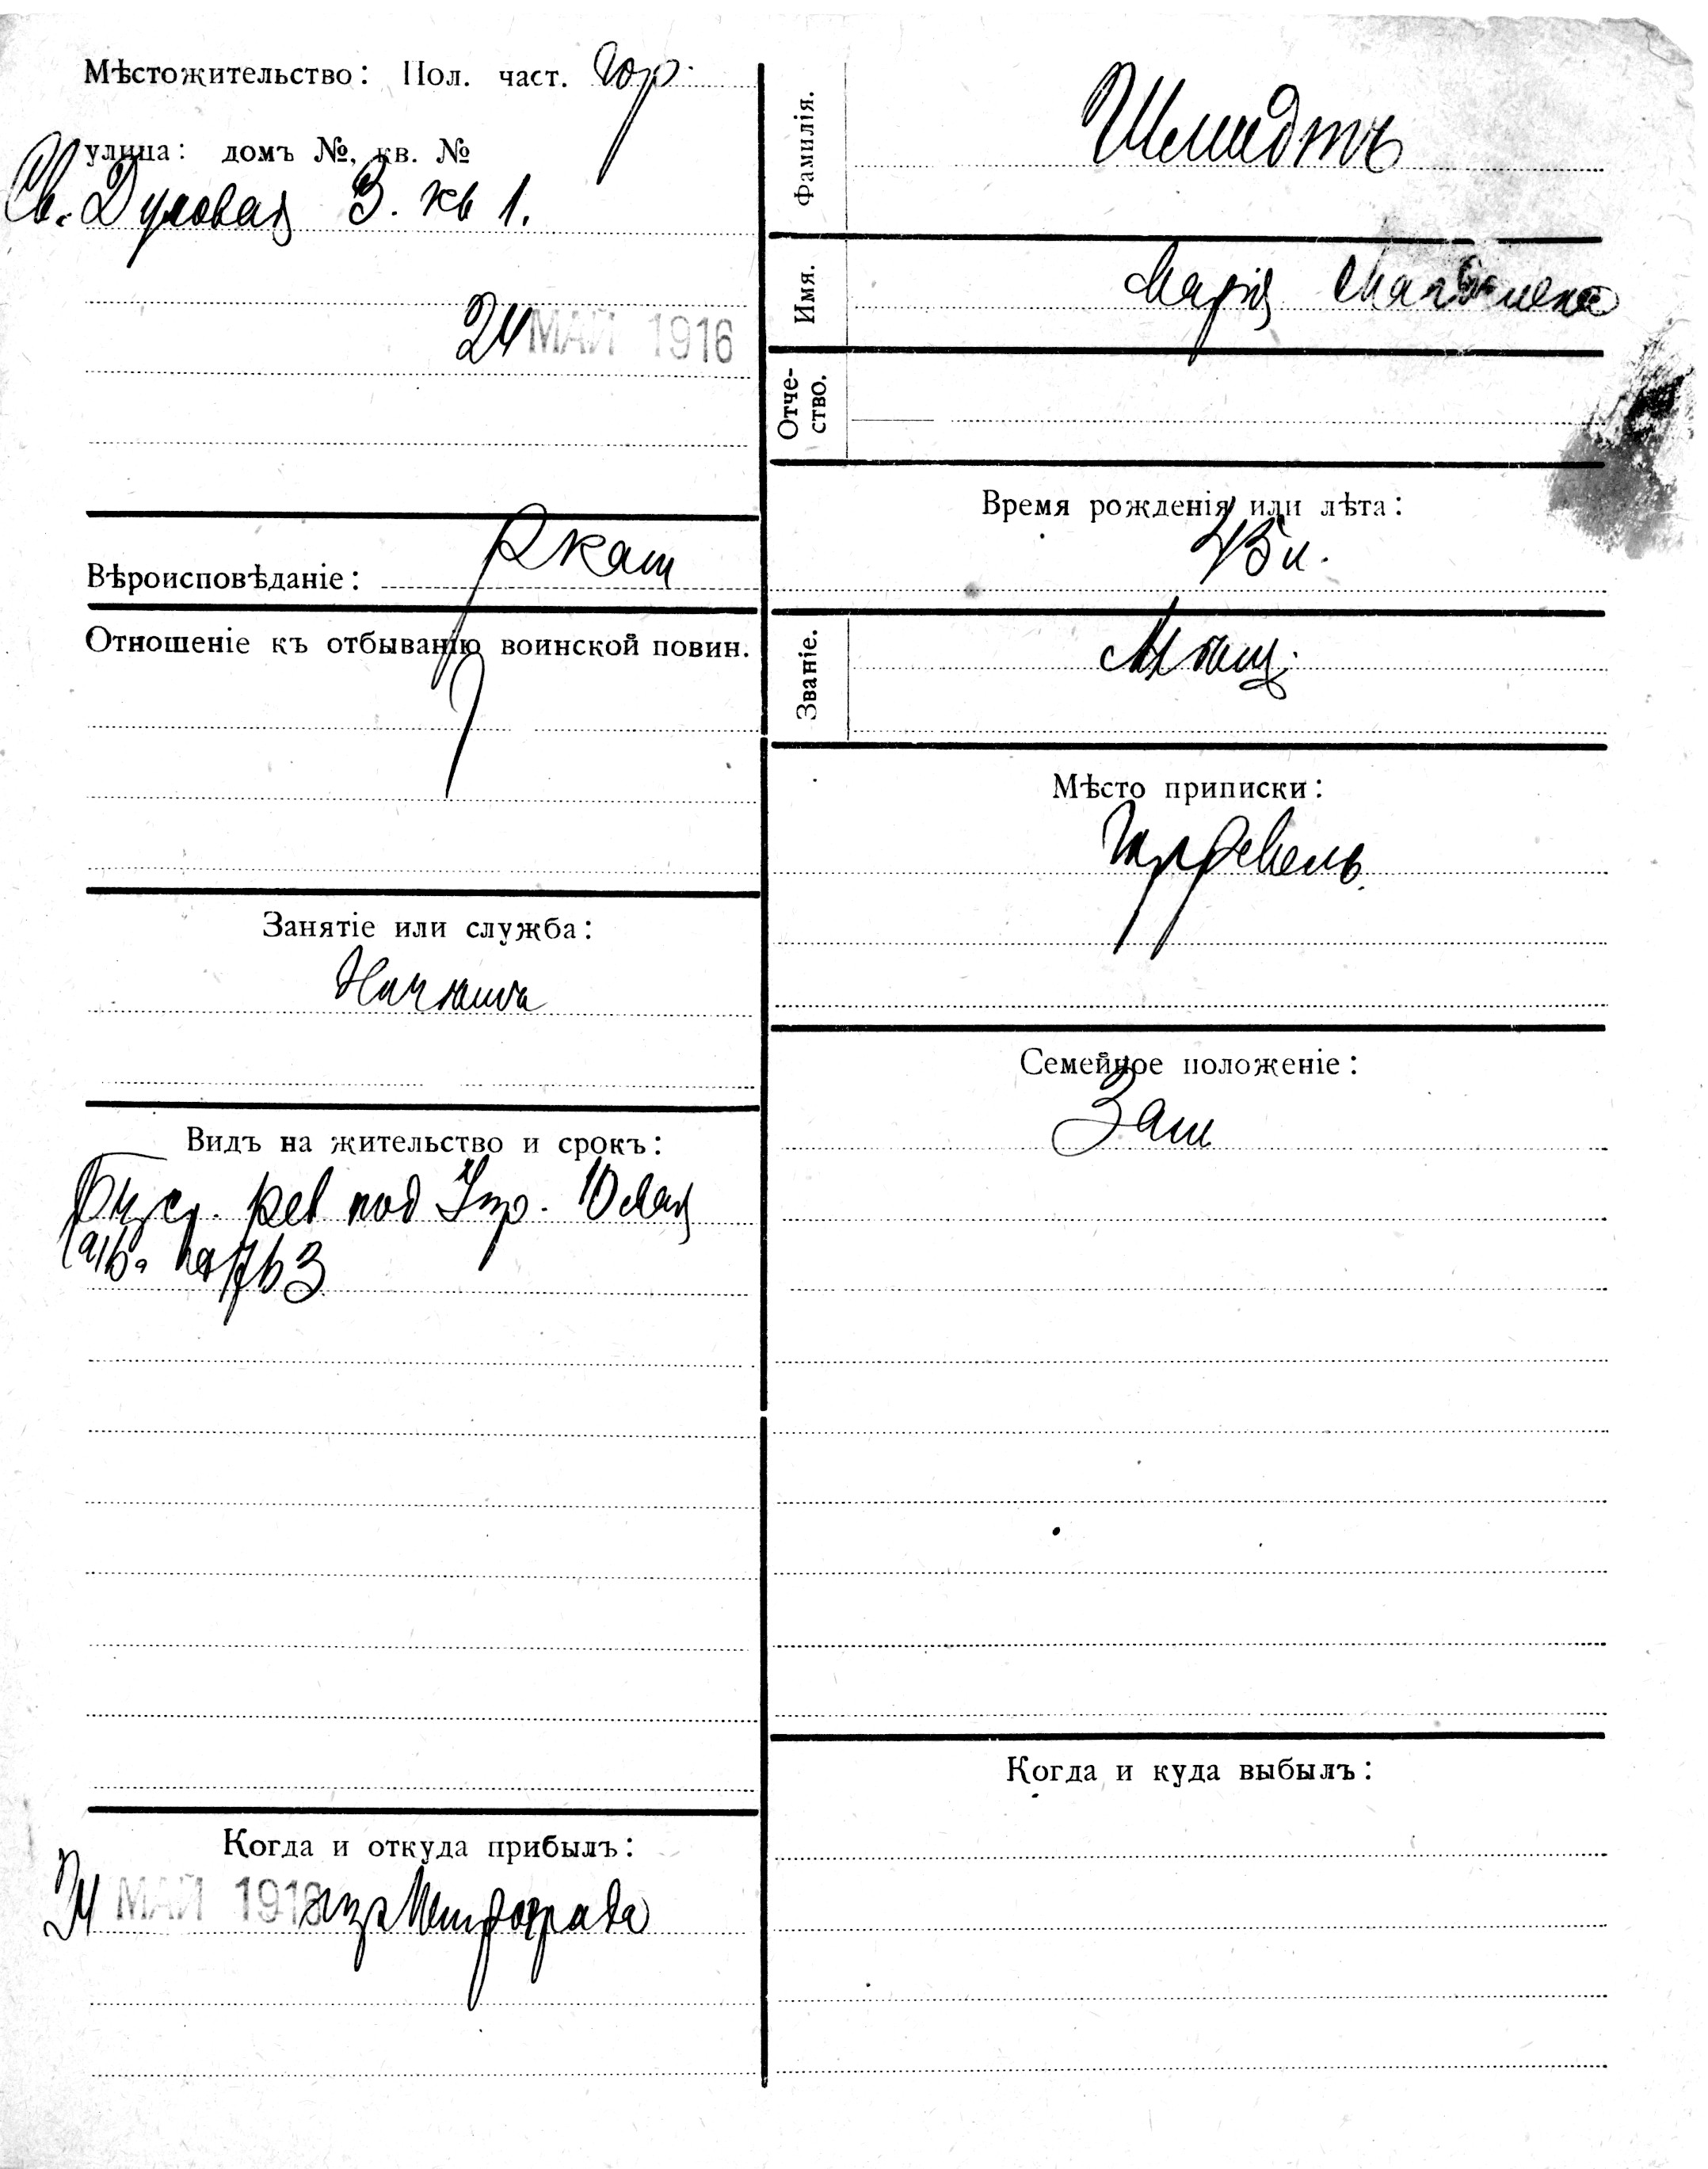 Мѣстожительство: Пол. част. Гор.
улица: домъ №, кв. №
Св. Духовая 3. кв 1.
24 МАЙ 1916
Вѣроисповѣданіе: Ркат
Отношеніе къ отбыванію воинской повин.
Занятіе или служба:
Видъ на жительство и срокъ:
рев под Упр. 10 мая
1916 г № 1763
Когда и откуда прибылъ:
24 МАЙ 1916 изъ Петрограда
Фамилія. Шмидтъ
Имя. Марія Магдалена
Отче-
ство.
Время рожденія или лѣта:
45 л.
Званіе. Мѣщ.
Мѣсто приписки:
гор Ревель
Семейное положеніе:
Зам
Когда и куда выбылъ: